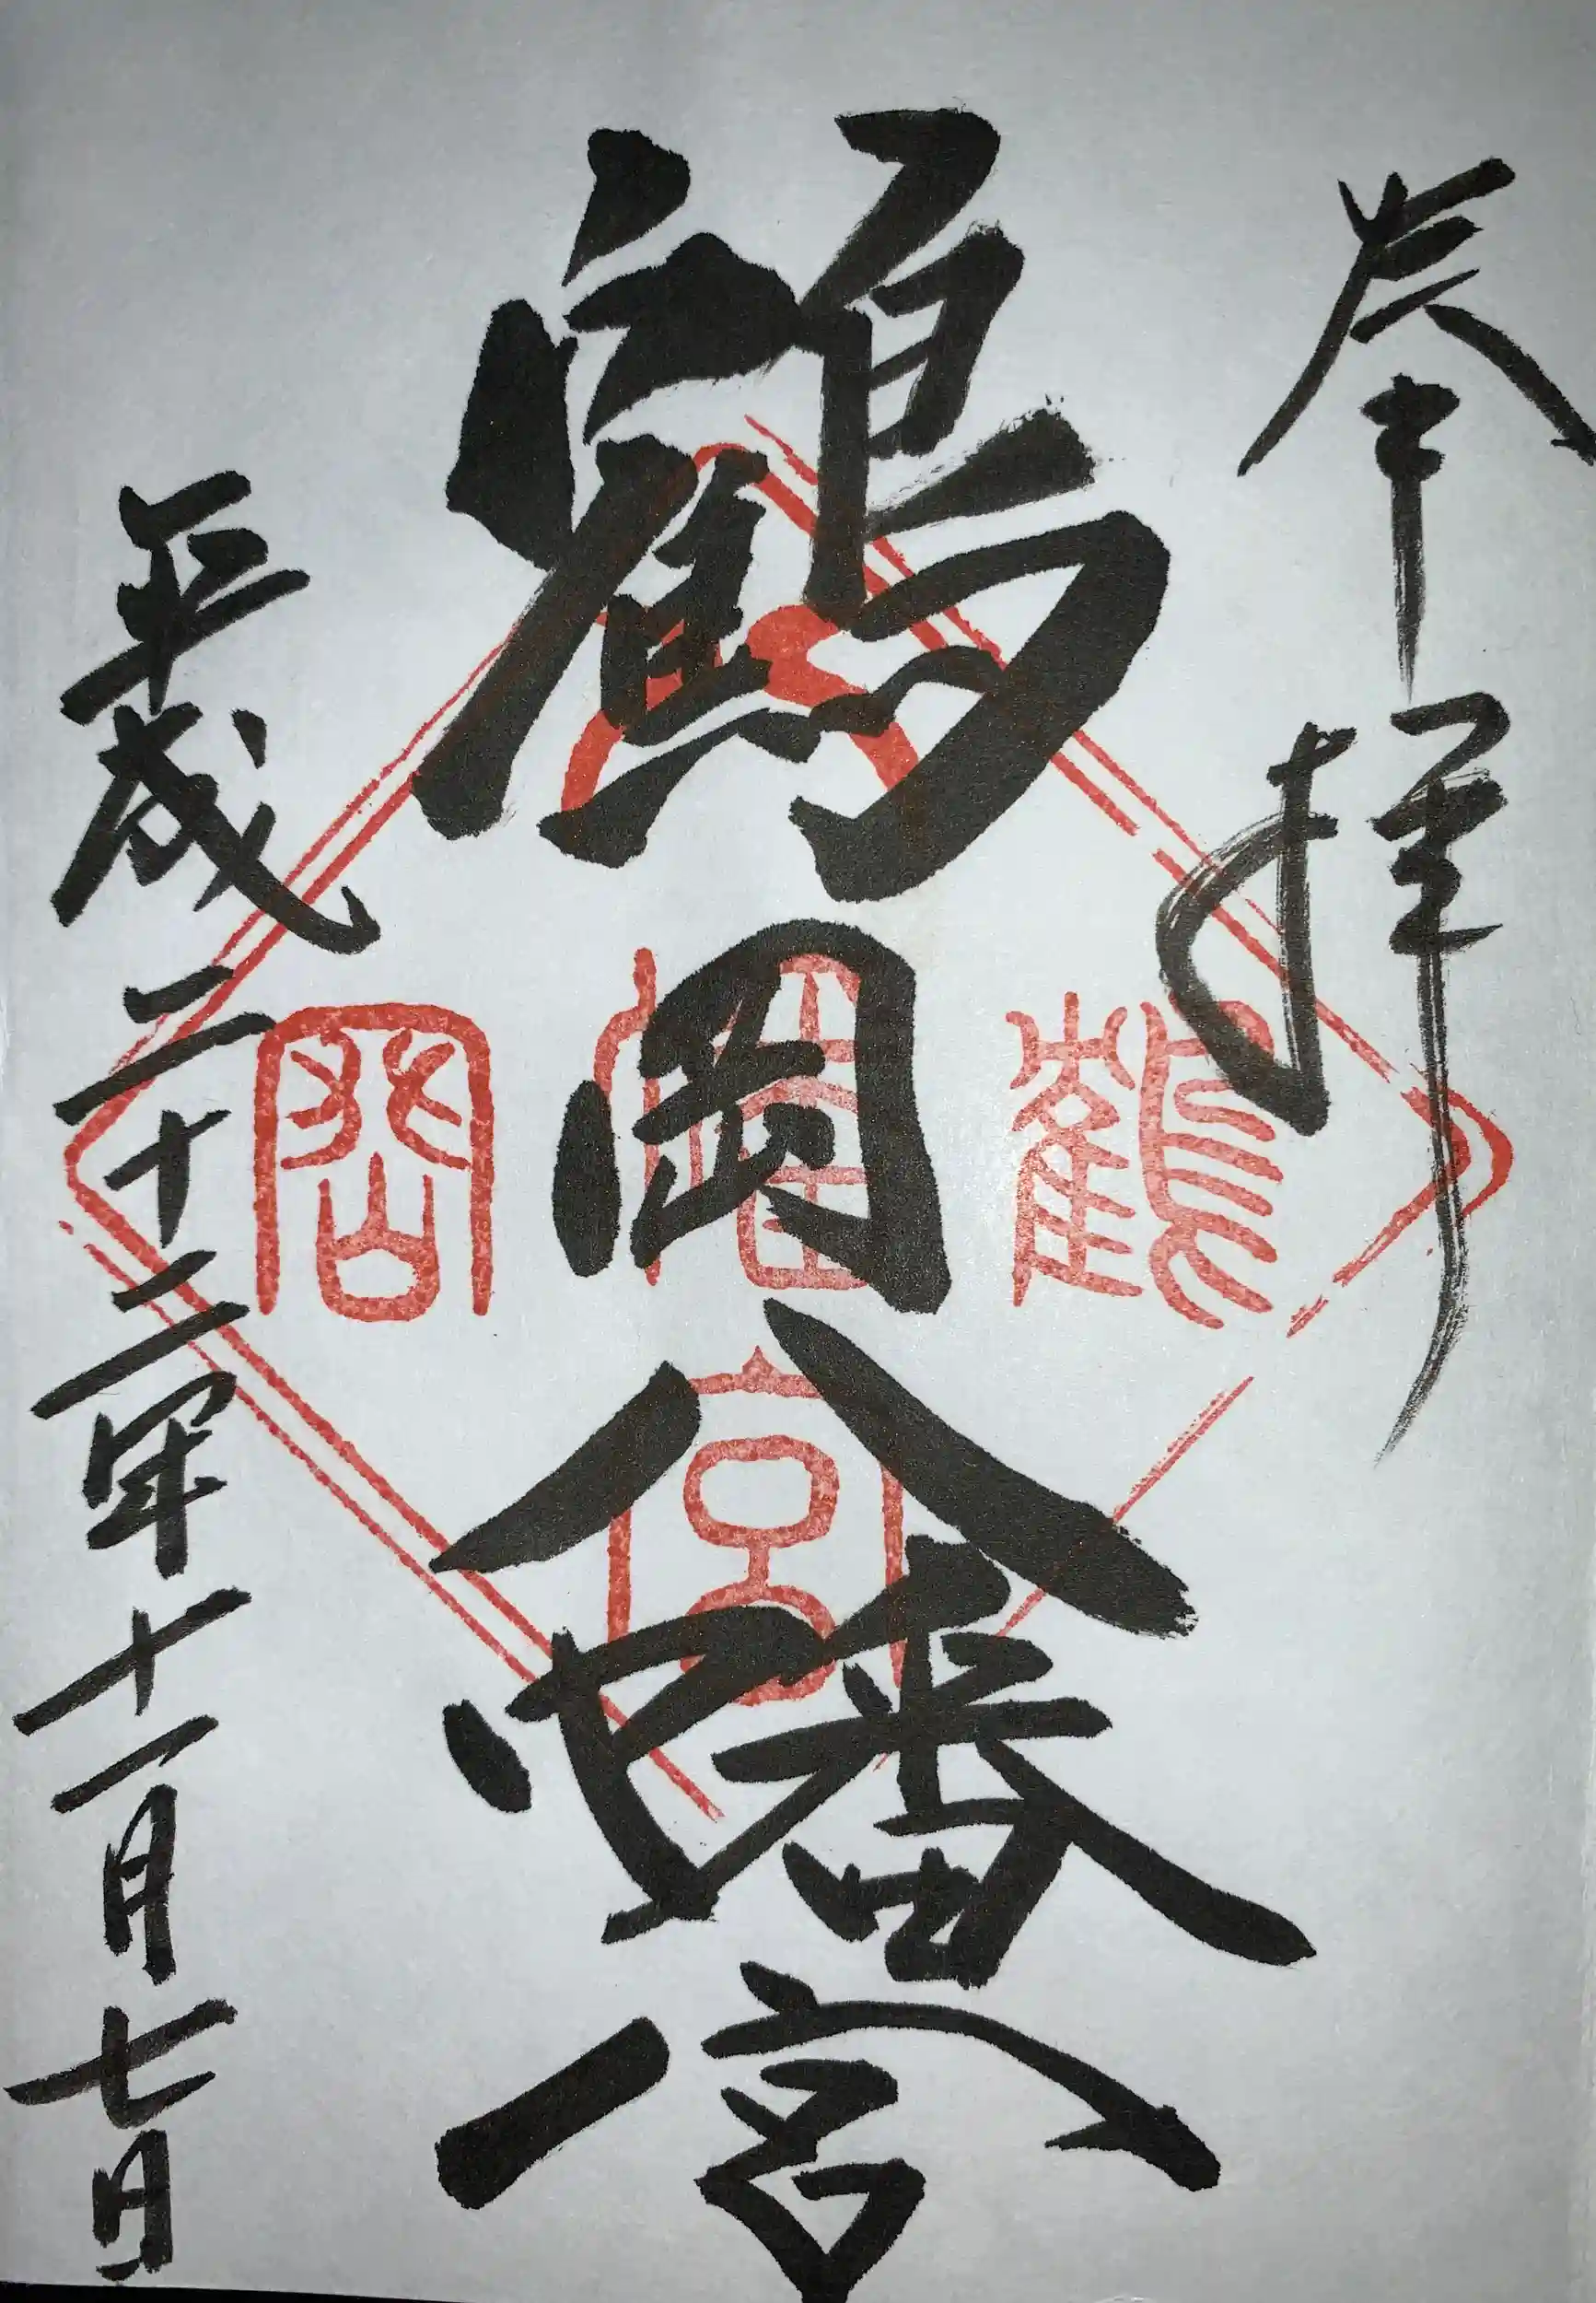 奉拝
鶴岡八幡宮
平成二十二年十一月七日
八
鶴幡岡
宮